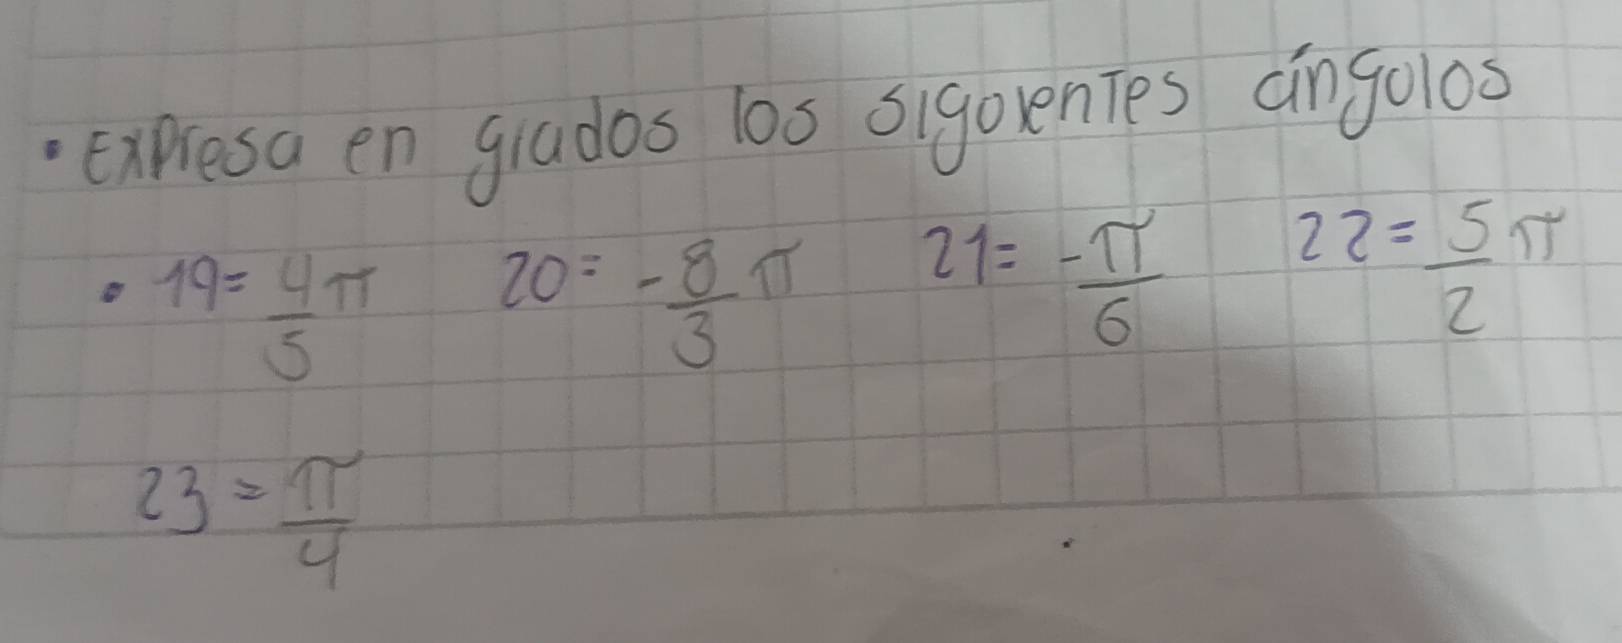 • Expresa en grados los sigouentes ángolos
• 19= 4/5 π 20= -8/3 π 21= -π/6 22= 5/2 π
23= π/4